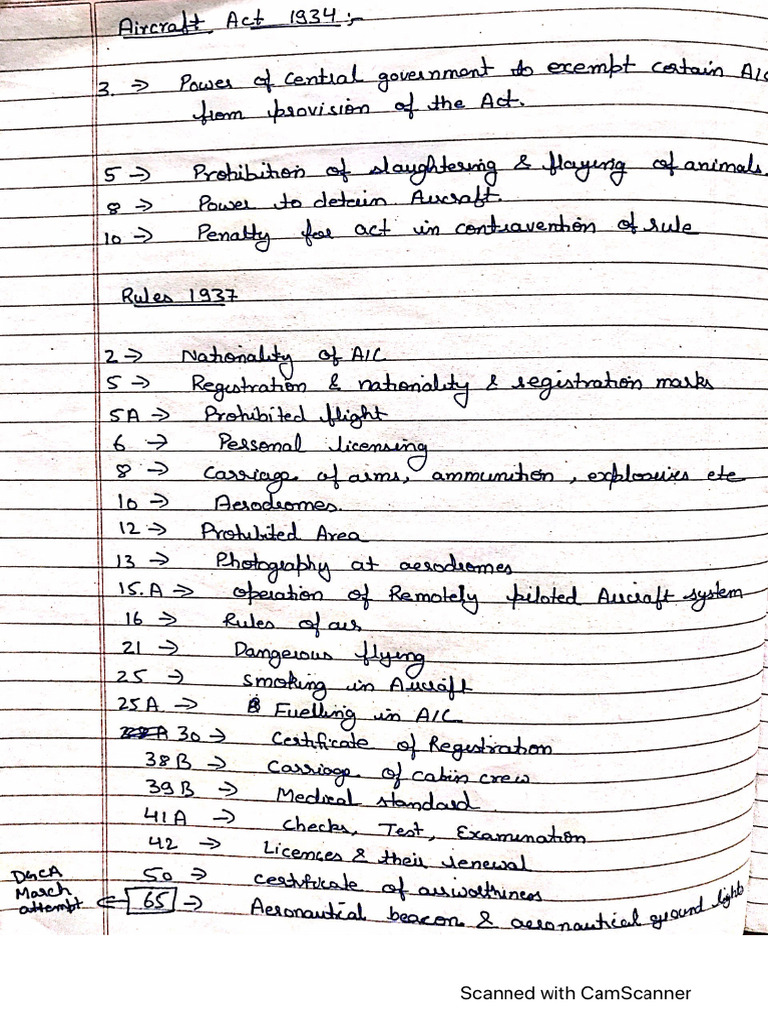 Aircraft Act 1934 :-
3. → Power of central government to exempt certain A/C
from provision of the Act.
5 → Prohibition of slaughtering & flaying of animals.
8 → Power to detain Aircraft.
10 → Penalty for act in contravention of rule
Rules 1937
2 → Nationality of A/C
5 → Registration & nationality & registration marks
5A → Prohibited flight
6 → Personal licensing
8 → Carriage of arms, ammunition, explosives etc
10 → Aerodromes.
12 → Prohibited Area
13 → Photography at aerodromes
15.A → operation of Remotely piloted Aircraft system
16 → Rules of air
21 → Dangerous flying
25 → smoking in Aircraft
25A → Fuelling in A/C
30 → Certificate of Registration
38B → Carriage of cabin crew
39B → Medical standard
41A → Checks, Test, Examination
42 → Licences & their renewal
50 → certificate of airworthiness
DGCA March attempt ← 65 → Aeronautical beacon & aeronautical ground lights
Scanned with CamScanner